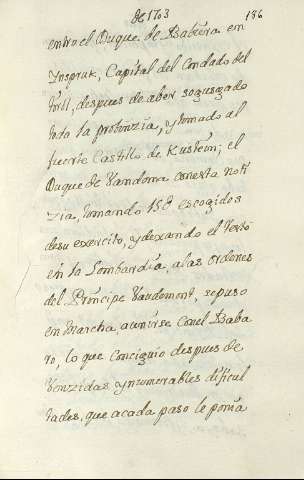 de 1703 186
entro el Duque de Babiera en
Ynspruk, Capital del Condado del
tirol, despues de aber sozusgado
toda la probinzia, y tomado al
fuerte Castillo de Kustein; el
Duque de Vandoma con esta noti
zia, tomando 15@ escogidos
de su exercito, y dexando el resto
en la Lombardia, a las ordenes
del Principe Vaudemont, se puso
en Marcha, a unirse con el Baba
ro, lo que conciguio despues de
Venzidas ynnumerables dificul
tades, que a cada paso le ponia